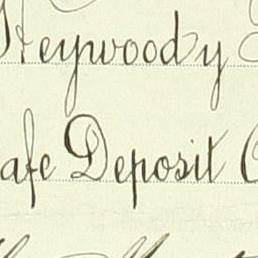 Heywoody
afe Deposit C